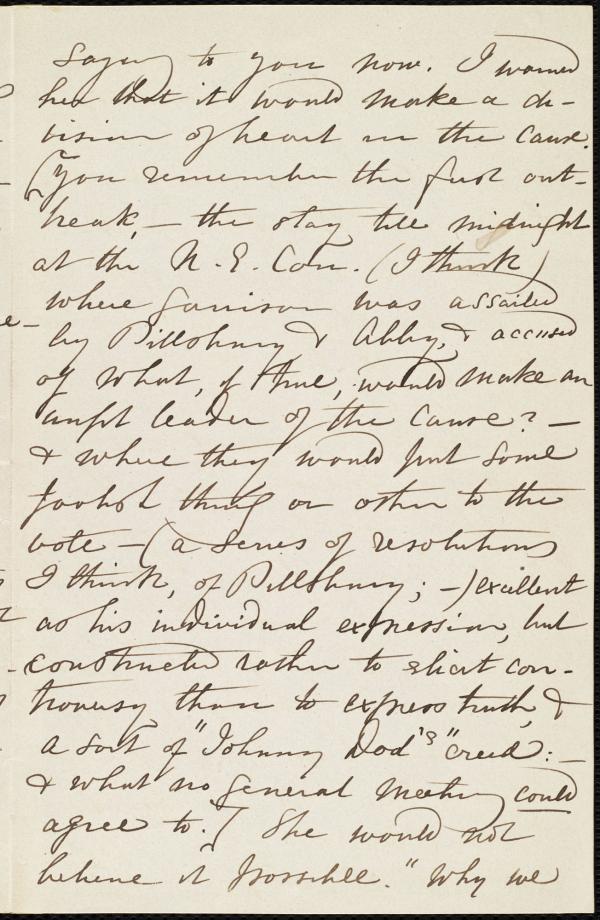 saying to you now. I warned
her that it would make a di-
vision of heart in the cause.
(You remember the first out-
break, — the stay till midnight
at the N. E. Con. (I think)
where Garrison was assailed
by Pillsbury & Abby, & accused
of what, if true, would make an
unfit leader of the cause? —
& where they would put some
foolish thing or other to the
vote — (a series of resolutions
I think, of Pillsbury; —) excellent
as his individual expression, but
constructed rather to elicit con-
troversy than to express truth, &
a sort of "Johnny Dod's" creed: —
& what no general meeting could
agree to.) She would not
believe it possible. "Why we